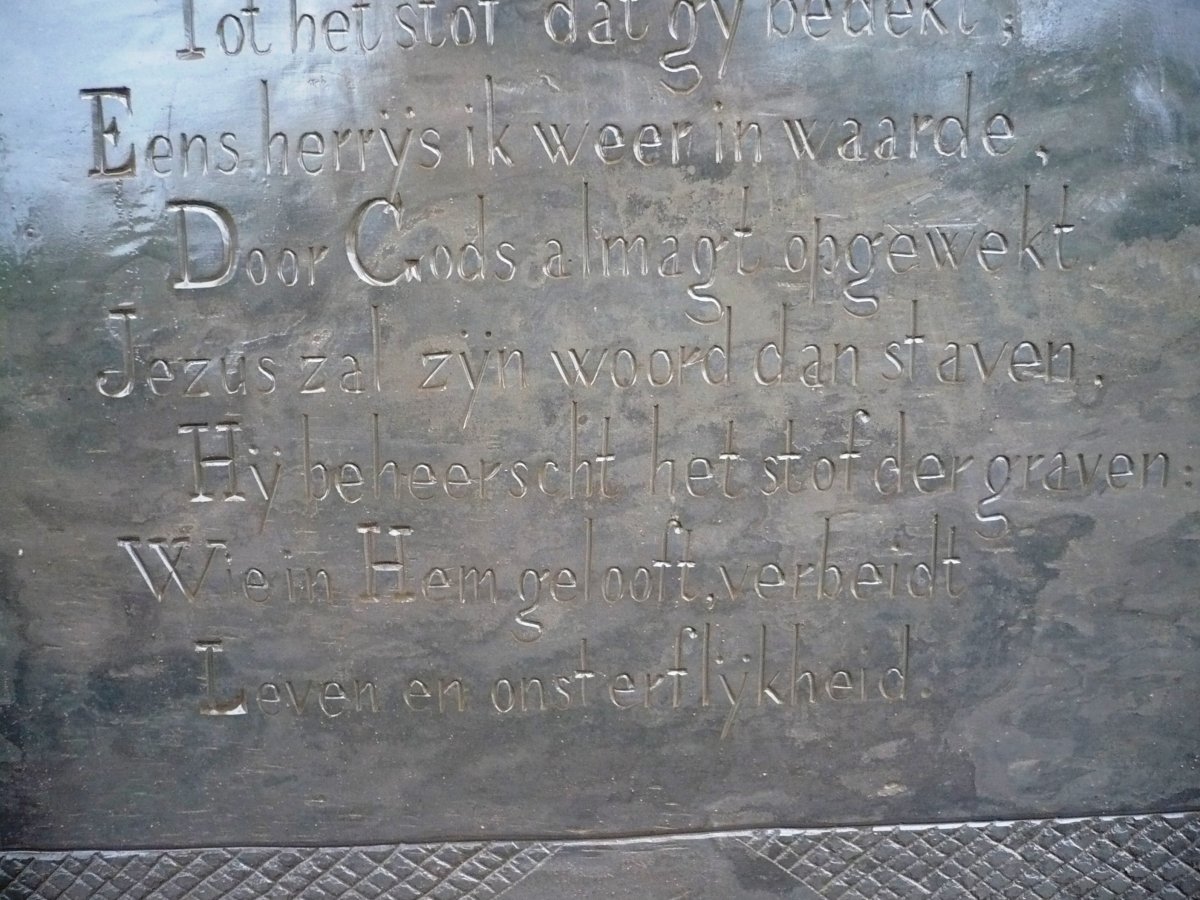 Tot het stof dat gy bedekt;
Eens herrys ik weer in waarde,
Door Gods almagt opgewekt.
Jezus zal zÿn woord dan staven,
Hÿ beheerscht het stof der graven:
Wie in Hem gelooft, verbeidt
Leven en onsterflÿkheid.